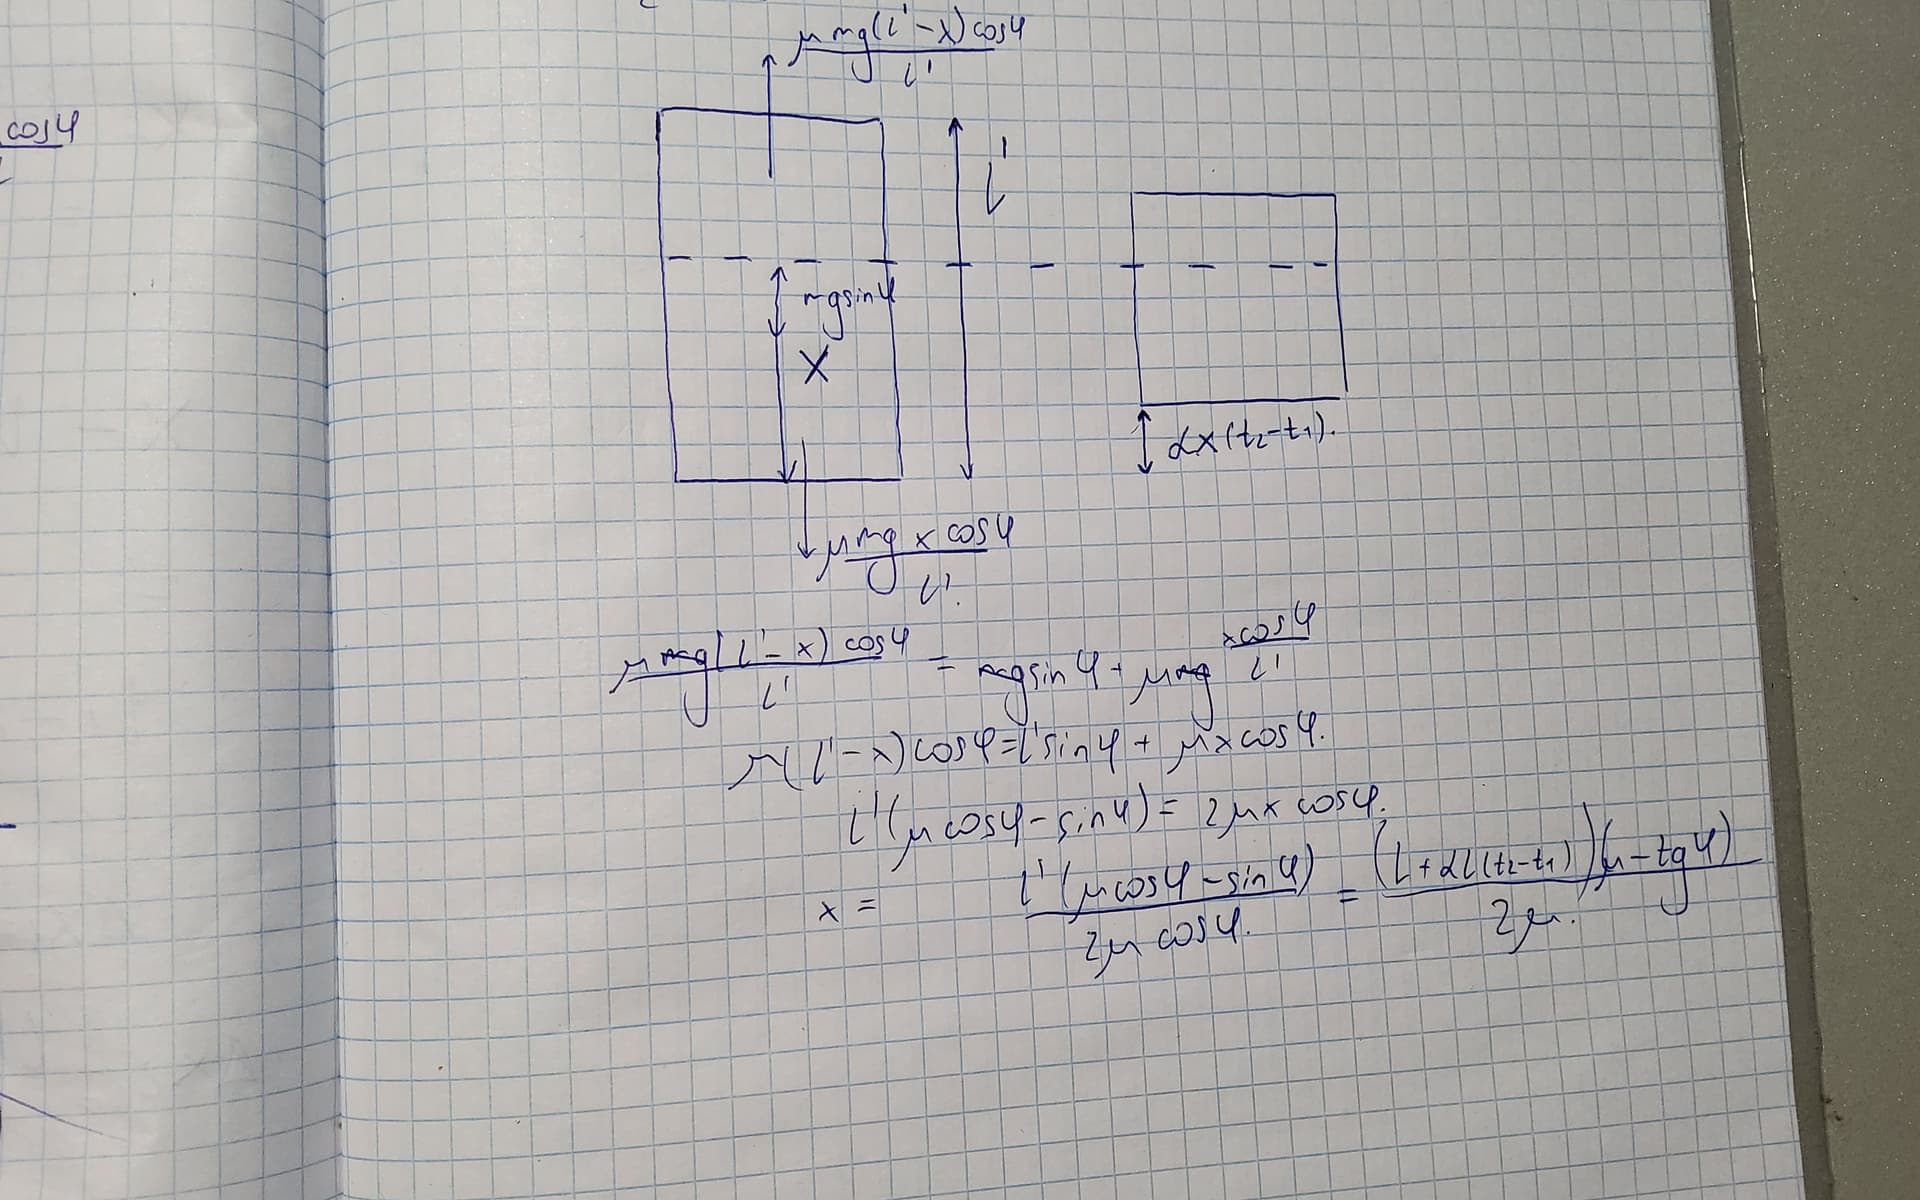 cosφ
μmg(l'-x)cosφ
l'
l'
mgsinφ
x
αx(t₂-t₁).
μmg x cosφ
l'.
μmg(l'-x)cosφ / l' = mgsinφ + μmg xcosφ / l'
μ(l'-x)cosφ=l'sinφ + μxcosφ.
l'(μcosφ-sinφ) = 2μx cosφ.
x = l'(μcosφ-sinφ) / 2μcosφ. = (l+αl(t₂-t₁))(μ-tgφ) / 2μ.